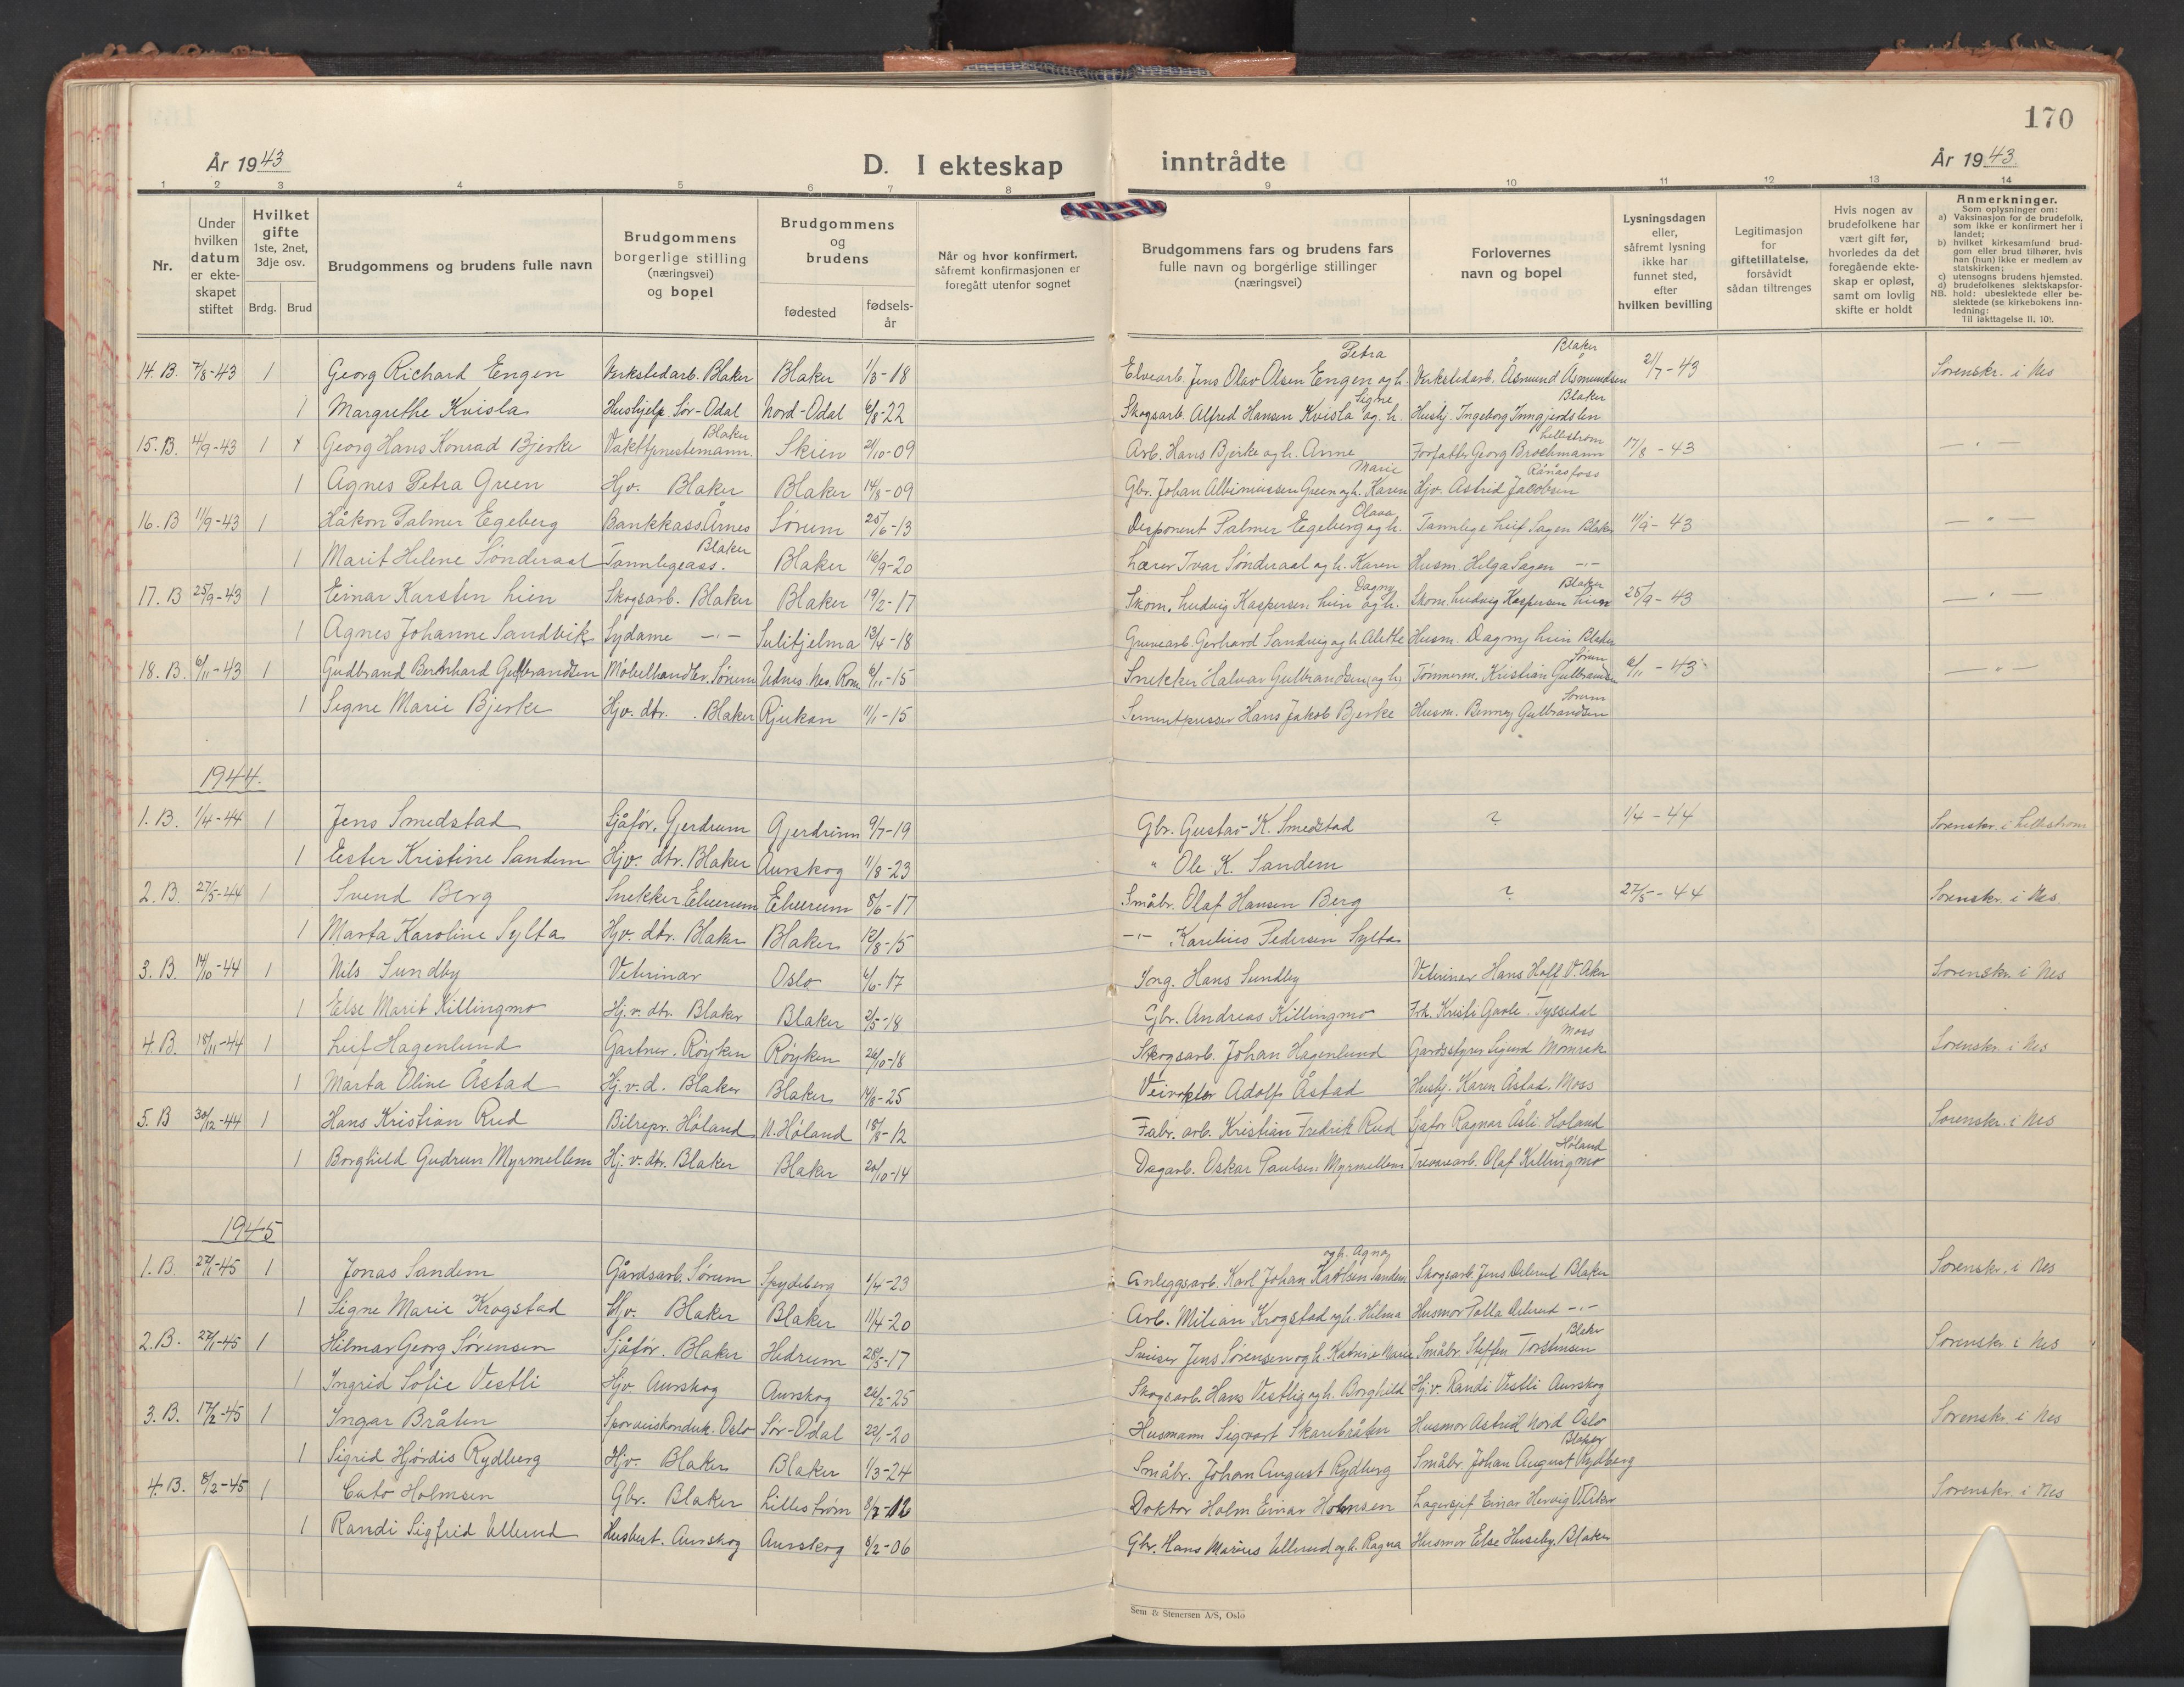 170
År 1943
D. I ekteskap inntrådte
År 1943
1 2 3 4 5 6 7 8 9 10 11 12 13 14
Nr.
Under hvilken datum er ekteskapet stiftet
Hvilket gifte 1ste, 2net, 3dje osv.
Brdg. Brud
Brudgommens og brudens fulle navn
Brudgommens borgerlige stilling (næringsvei) og bopel
Brudgommens og brudens
fødested
fødselsår
Når og hvor konfirmert, såfremt konfirmasjonen er foregått utenfor sognet
Brudgommens fars og brudens fars fulle navn og borgerlige stillinger (næringsvei)
Forlovernes navn og bopel
Lysningsdagen eller, såfremt lysning ikke har funnet sted, efter hvilken bevilling
Legitimasjon for giftetillatelse, forsåvidt sådan tiltrenges
Hvis nogen av brudefolkene har vært gift før, hvorledes da det foregående ekteskap er opløst, samt om lovlig skifte er holdt
Anmerkninger.
Som oplysninger om:
a) Vaksinasjon for de brudefolk, som ikke er konfirmert her i landet;
b) hvilket kirkesamfund brudgom eller brud tilhører, hvis han (hun) ikke er medlem av statskirken;
c) utensogns brudens hjemsted.
d) brudefolkenes slektskapsforhold: ubeslektede eller beslektede (se kirkebokens innledning:
NB.
Til iakttagelse II, 10).
14. B. 7/8-43 1 Georg Richard Engen Verkstedarb. Blaker Blaker 1/3-18 Elvearb. Jens Olav Olsen Engen og h. Petra Verkstedarb. Åsmund Åsmundsen Blaker 21/7-43 Sorenskr. i Nes
1 Margrethe Kvisla Hushjelp. Sør-Odal Nord-Odal 6/8-22 Skogsarb. Alfred Hansen Kvisla og h. Signe Hushj. Ingeborg Inngjerdslen Blaker
15. B. 4/9-43 1 Georg Hans Konrad Bjerke Vakttjenestemann. Blaker Skien 21/10-09 Arb. Hans Bjerke og h. Anne Forfatter Georg Brochmann Lillestrøm 17/8-43 — " —
1 Agnes Petra Green Hjv. Blaker Blaker 14/8-09 Gbr. Johan Albiniussen Green og h. Karen Marie Hjv. Astrid Jacobsen Rånåsfoss
16. B 11/9-43 1 Håkon Palmer Egeberg Bankkass. Årnes Sørum 25/6-13 Disponent Palmer Egeberg og h. Olava Tannlege Leif Sagen Blaker 11/9-43 — " —
1 Marit Helene Sønderaal Tannlegeass. Blaker Blaker 16/9-20 Lærer Ivar Sønderaal og h. Karen Husm. Helga Sagen -"-
17. B 25/9-43 1 Einar Karsten Lien Skogsarb. Blaker Blaker 19/2-17 Skom. Ludvig Kaspersen Lien og h. Dagny Skom. Ludvig Kaspersen Lien Blaker 25/9-43 — " —
1 Agnes Johanne Sandvik Sydame -"- Sulitjelma 13/4-18 Gruvearb. Gerhard Sandvig og h. Alethe Husm. Dagny Lien Blaker
18. B. 6/11-43 1 Gudbrand Bernhard Gulbrandsen Møbelhandler. Sørum Udnes. Nes. Rom 6/11-15 Snekker Halvar Gulbrandsen (og h) Tømmerm. Kristian Gulbrandsen Sørum 6/11-43 — " —
1 Signe Marie Bjerke Hjv. dtr. Blaker Rjukan 11/1-15 Sementpusser Hans Jakob Bjerke Husm. Benny Gulbrandsen Sørum
1944.
1. B. 1/4-44 1 Jens Smedstad Sjåfør. Gjerdrum Gjerdrum 9/7-19 Gbr. Gustav K. Smedstad ? 1/4-44 Sorenskr. i Lillestrøm
1 Ester Kristine Sandem Hjv. dtr. Blaker Aurskog 11/8-23 " Ole K. Sandem
2. B. 27/5-44 1 Svend Berg Snekker Elverum Elverum 8/6-17 Småbr. Olaf Hansen Berg ? 27/5-44 Sorenskr. i Nes.
1 Marta Karoline Sylta Hjv. dtr. Blaker Blaker 12/8-15 -"- Karelius Pedersen Sylta
3. B. 14/10-44 1 Nils Sundby Veterinær Oslo 6/6-17 Ing. Hans Sundby Veterinær Hans Hoff V. Aker Sorenskr. i Nes
1 Else Marit Killingmo Hj.v. dtr. Blaker Blaker 2/5-18 Gbr. Andreas Killingmo Frk. Kristi Gavle. Tyssedal
4. B. 18/11-44 1 Leif Hagenlund Gartner. Røyken Røyken 26/10-18 Skogsarb. Johan Hagenlund Gardsstyrer Sigurd Momrak Moss Sorenskr. i Nes
1 Marta Oline Åstad Hj.v.d. Blaker Blaker 14/8-25 Veivokter Adolf Åstad Hushj. Karen Åstad. Moss
5. B 30/12-44 1 Hans Kristian Rud Bilrepr. Høland N. Høland 18/8-12 Fabr. arb. Kristian Fredrik Rud Sjåfør Ragnar Åsli. Høland Sorenskr. i Nes
1 Borghild Gudrun Myrmellem Hj.v. dtr. Blaker Blaker 20/10-14 Dagarb. Oskar Paulsen Myrmellem Trevarearb. Olaf Killingmo Høland
1945
1. B. 27/1-45 1 Jonas Sandem Gårdsarb. Sørum Spydeberg 1/4-23 Anleggsarb. Karl Johan Karlsen Sandem og h. Agna Skogsarb. Jens Delerud Blaker Sorenskr. i Nes
1 Signe Marie Krogstad Hjv. Blaker Blaker 11/4-20 Arb. Milian Krogstad og h. Hilma Husmor Palla Delerud -"-
2. B. 27/1-45 1 Hilmar Georg Sørensen Sjåfør. Blaker Hedrum 28/5-17 Sveiser Jens Sørensen og h. Katrine Marie Småbr. Steffen Torstensen Blaker Sorenskr. i Nes
1 Ingrid Sofie Vestli Hjv. Aurskog Aurskog 26/2-25 Skogsarb. Hans Vestli og h. Borghild Hj.v. Randi Vestli Aurskog
3. B. 17/2-45 1 Ingar Bråten Sporveiskonduk. Oslo Sør-Odal 22/1-20 Husmann Sigvart Skarebråten Husmor Astrid Nord Oslo Sorenskr. i Nes
1 Sigrid Hjørdis Rydberg Hjv. Blaker Blaker 1/3-24 Småbr. Johan August Rydberg Småbr. Johan August Rydberg Blaker
4. B. 8/2-45 1 Cato Holmsen Gbr. Blaker Lillestrøm 8/7-12 Doktor Holm Einar Holmsen Lagersjef Einar Hervig V. Aker Sorenskr. i Nes
1 Randi Sigfrid Ullerud Husbest. Aurskog Aurskog 8/2-06 Gbr. Hans Marius Ullerud og h. Ragna Husmor Else Huseby. Blaker
Sem & Stenersen A/S, Oslo